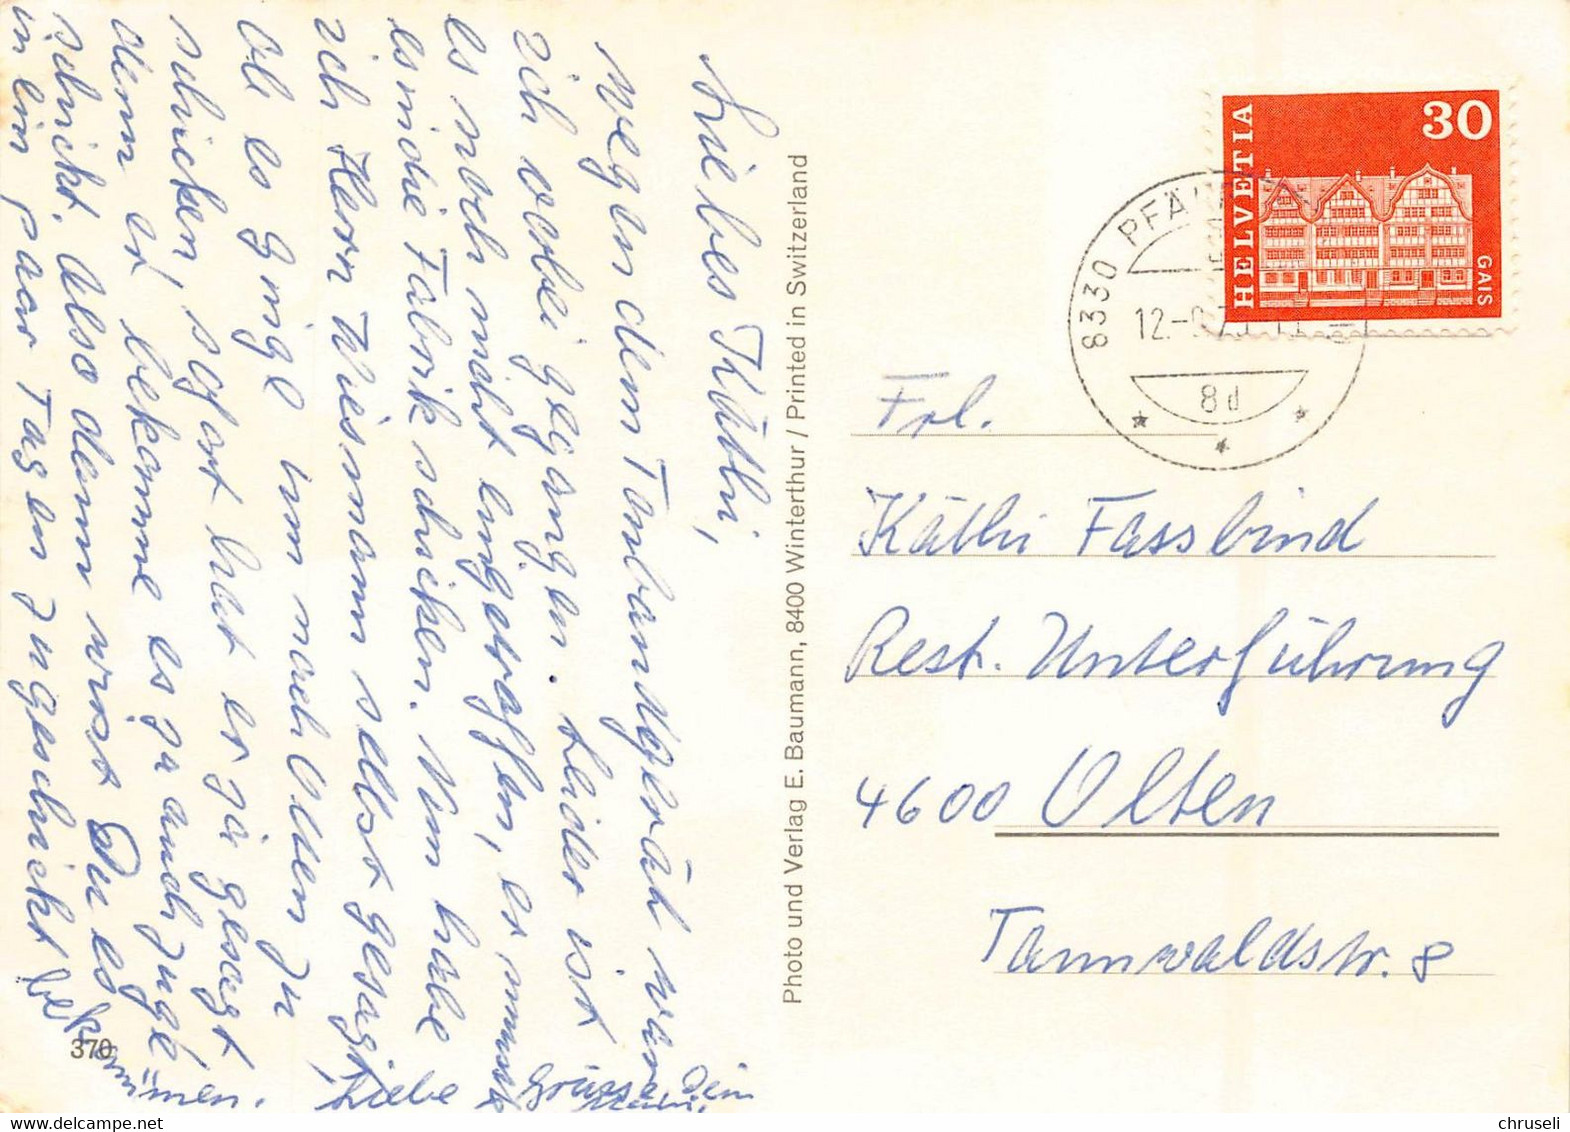 Liebes Käthi,
wegen dem Tonbandgerät war
ich vorbei gegangen. Leider ist
es noch nicht eingetroffen, er muss
es in die Fabrik schicken. Nun habe
ich Herrn Wiesmann selbst gesagt
ob es ginge ihm nach Olten zu
schicken, sofort hat er ja gesagt
denn er bekomme es ja auch zuge
schickt. Also denn wirst Du es
in ein paar Tagen zugeschickt bekommen.
Liebe Grüsse Dein
370
Photo und Verlag E. Baumann, 8400 Winterthur / Printed in Switzerland
HELVETIA
30
GAIS
8330 PFÄ
12.-
8d
Frl.
Käthi Fassbind
Rest. Unterführung
4600 Olten
Tannwaldstr. 8
chruseli